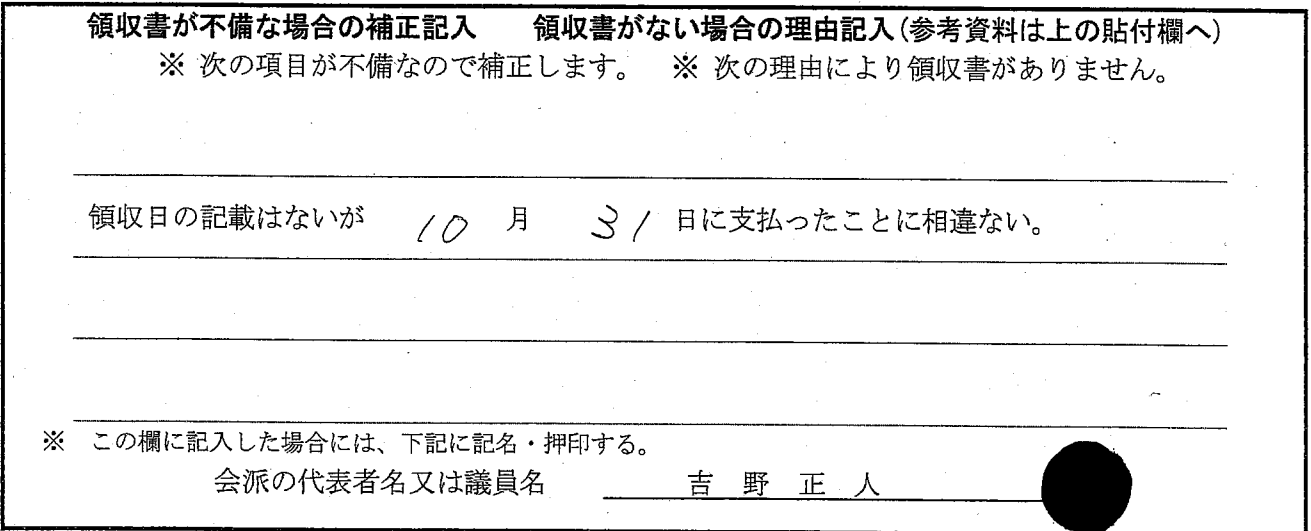 領収書が不備な場合の補正記入　領収書がない場合の理由記入(参考資料は上の貼付欄へ)
※ 次の項目が不備なので補正します。　※ 次の理由により領収書がありません。
領収日の記載はないが　10　月　31　日に支払ったことに相違ない。
※　この欄に記入した場合には、下記に記名・押印する。
会派の代表者名又は議員名　吉野正人